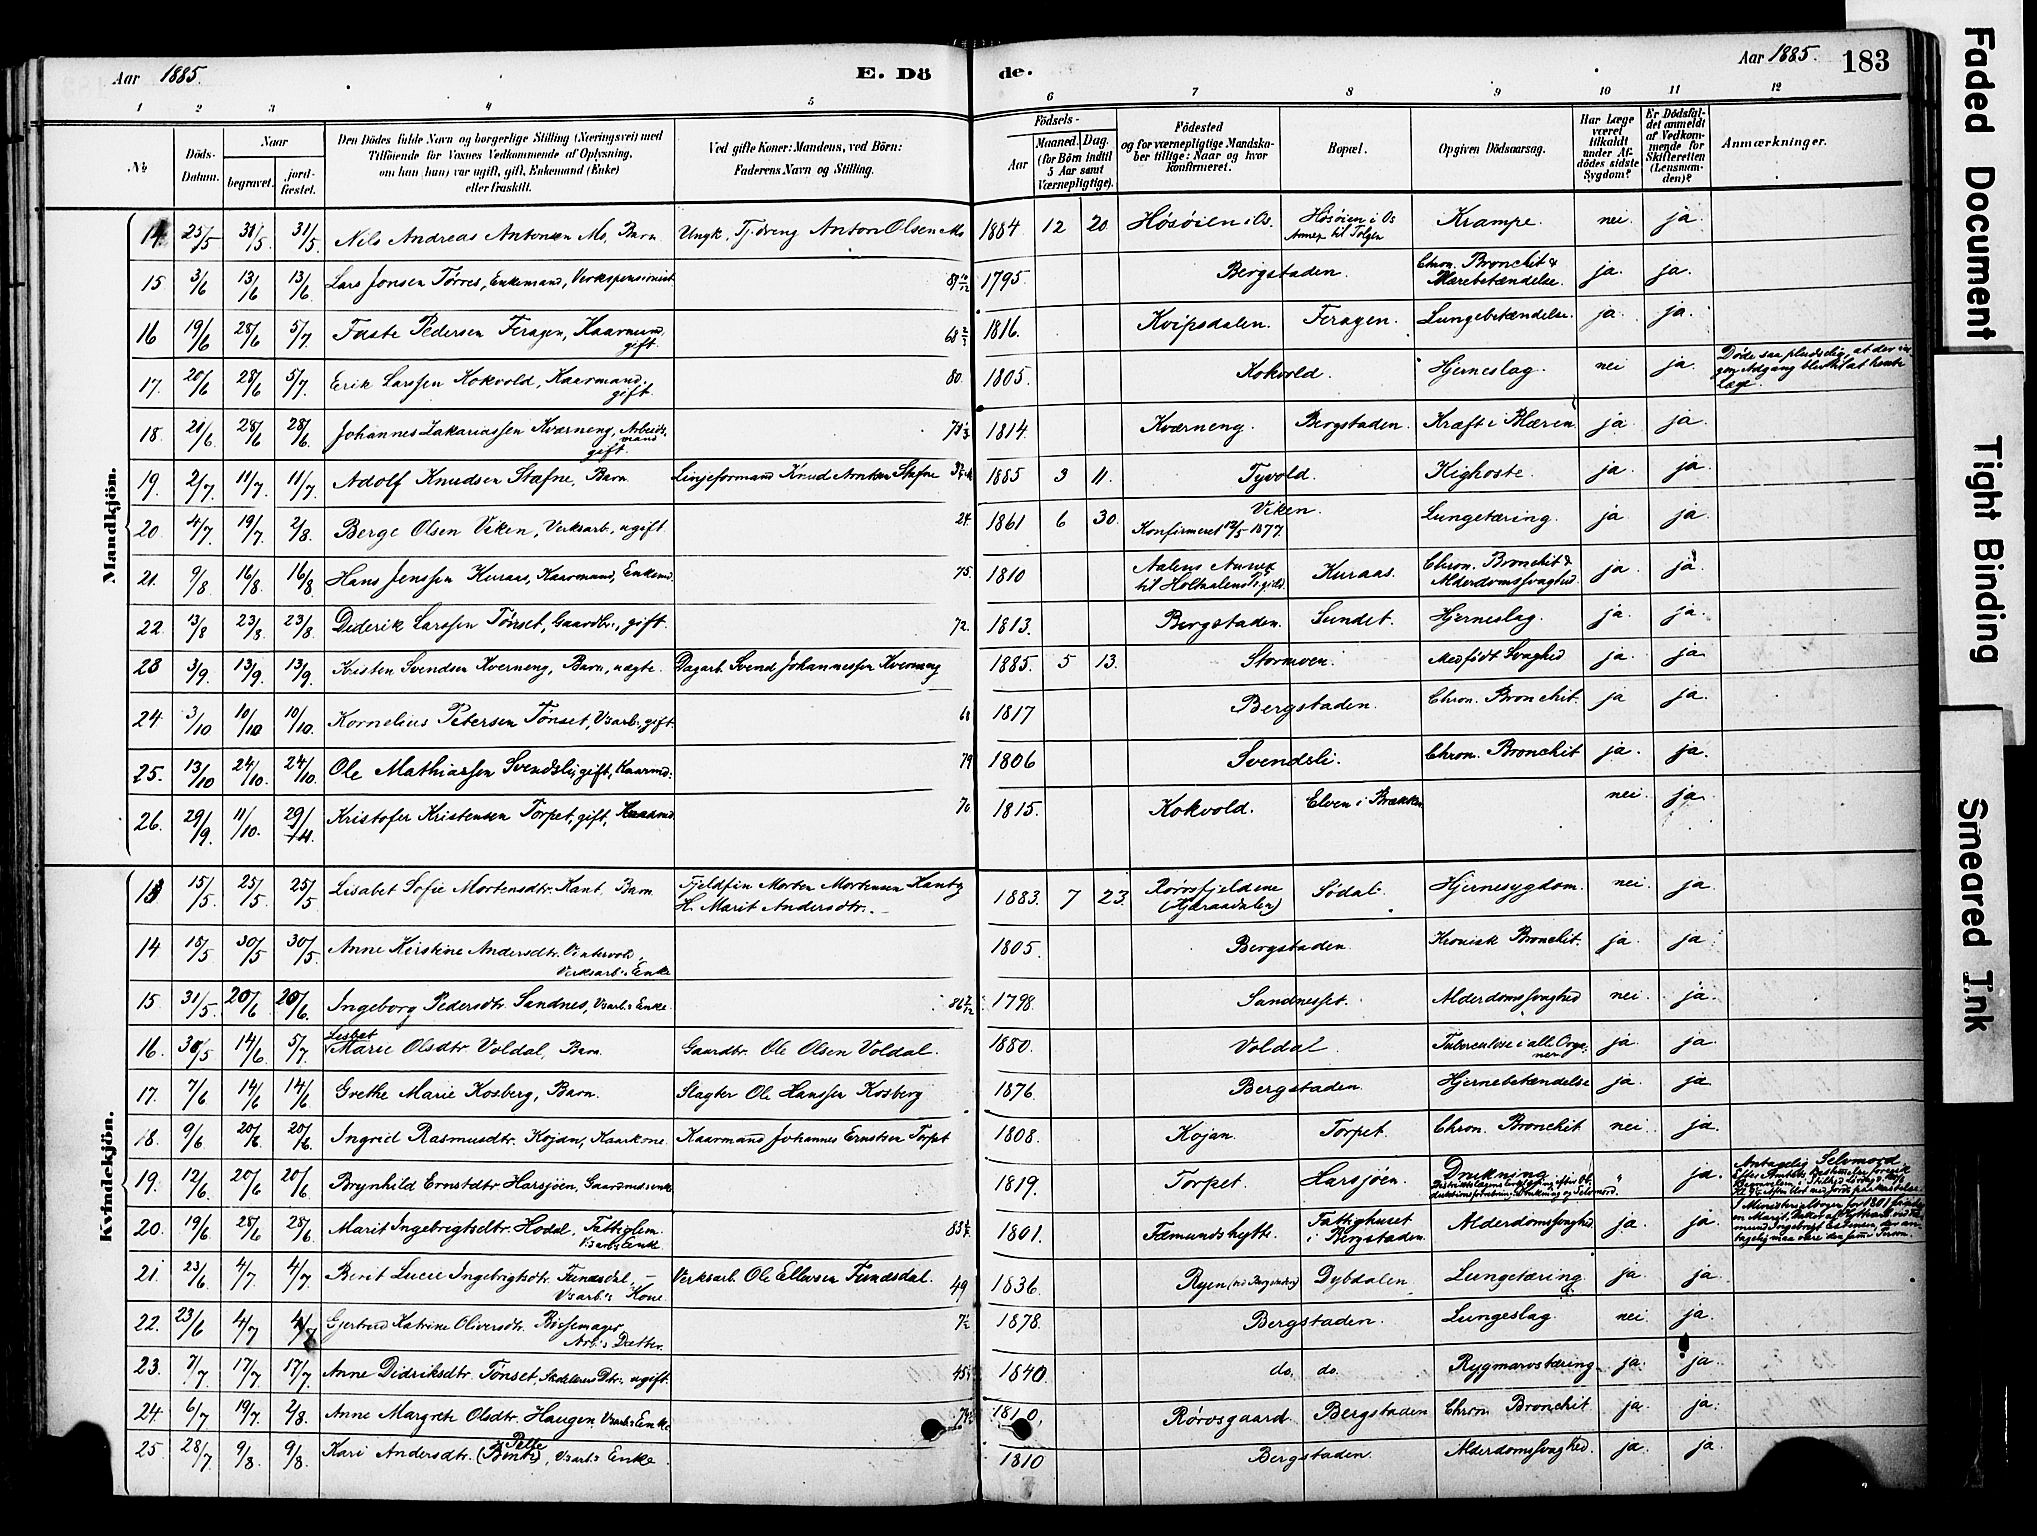 Aar 1885.
E. Dö
de.
Aar 1885.
183
1 2 3 4 5 6 7 8 9 10 11 12
No
Döds-Datum.
Naar
begravet.
jord-fæstet.
Den Dödes fulde Navn og borgerlige Stilling (Næringsvei) med
Tilföiende for Voxnes Vedkommende af Oplysning,
om han (hun) var ugift, gift, Enkemand (Enke)
eller fraskilt.
Ved gifte Koner: Mandens, ved Börn:
Faderens Navn og Stilling.
Födsels-
Aar
Maaned. Dag.
(for Börn indtil
5 Aar samt
Værnepligtige).
Födested
og for værnepligtige Mandska-
ber tillige: Naar og hvor
konfirmeret.
Bopæl.
Opgiven Dödsaarsag.
Har Læge
været
tilkaldt
under Af-
dödes sidste
Sygdom?
Er Dödsfal-
det anmeldt
af Vedkom-
mende for
Skifteretten
(Lensman-
den)?
Anmærkninger.
Mandkjön.
14 25/5 31/5 31/5 Nils Andreas Antonsen Mo, Barn Ungk, Tj.dreng Anton Olsen Mo 1884 12 20 Hösöien i Os. Hösöien i Os Annex til Tolgen Krampe nei. ja
15 3/6 13/6 13/6 Lars Jonsen Törres, Enkemand, Verkspensionist 89 10/12 1795 Bergstaden. Chron. Bronchit & Blærebetændelse. ja. ja.
16 19/6 28/6 5/7 Faste Pedersen Feragen, Kaarmand gift. 68 1816. Kvipsdalen. Feragen. Lungebetændelse. ja. ja.
17. 20/6 28/6 5/7 Erik Larssen Kokvold, Kaarmand. gift. 80 1805. Kokvold. Hjerneslag. nei ja. Döde saa pludselig, at der in-
gen Adgang blev til at hente
læge.
18 21/6 28/6 28/6 Johannes Zakariassen Kværneng, Arbeids-mand gift. 1814. Kværneng. Bergstaden. Kræft i Blæren ja ja
19. 2/7 11/7 11/7 Adolf Knudsen Stafne, Barn Linjeformand Knud Arntsen Stafne 1885 3 11. Tyvold. Kighoste. ja ja.
20 4/7 19/7 2/8 Berge Olsen Viken, Verksarb., ugift. 24. 1861 6 30. Viken. Konfirmeret 12/5 1877. Lungetæring. ja ja.
21. 9/8 16/8 16/8 Hans Jenssen Kuraas, Kaarmand, Enkem. 75. 1810 Aalens Annex til Holtaalens Pgjeld. Kuraas. Chron. Bronchit & Alderdomssvaghed ja. ja.
22 13/8 23/8 23/8 Diderik Larssen Tönset, Gaardbr., gift. 72. 1813. Bergstaden. Sundet. Hjerneslag. ja. ja.
23 3/9. 13/9. 13/9. Kristen Svendsen Kverneng, Barn, uægte. Dagarb. Svend Johannessen Kverneng 1885. 5 13. Stormoen. Medfödt Svaghed ja. ja.
24 3/10 10/10 10/10 Kornelius Petersen Tönset, V:arb:, gift. 68 1817 Bergstaden. Chron. Bronchit. ja ja.
25. 13/10 24/10. 24/10. Ole Mathiassen Svendsli, gift, Kaarmd. 79 1806 Svendsli. Chron. Bronchit ja. ja.
26. 29/9. 11/10. 29/11 Kristofer Kristensen Torpet, gift, Kaarmd 70 1815. Kokvold. Elven i Brækken nei. ja.
Kvindekjön.
13 15/5. 25/5. 25/5 Lisabet Sofie Mortensdtr. Kant, Barn Fjeldfin Morten Mortensen Kant og
H. Marit Andersdtr. 1883. 7 23. Rörosfjeldene (Hjæraadalen) Södal. Hjernesygdom. nei. ja
14 18/5 30/5 30/5. Anne Kirstine Andersdtr. Vintervold, Verksarb:s Enke 1805. Bergstaden. Kronisk Bronchit. ja. ja.
15 31/5. 20/6 20/6. Ingeborg Pedersdtr. Sandnes, V:sarb:s Enke 86 7/12 1798. Sandnesset. Alderdomssvaghed nei. ja.
16. 30/5 14/6 5/7. Lisbet Marie Olsdtr. Voldal, Barn. Gaardbr. Ole Olsen Voldal. 1880. Voldal. Tuberculose i alle Orga-ner ja. ja.
17. 7/6 14/6 14/6. Grethe Marie Kosberg, Barn. Slagter Ole Hanssen Kosberg 1876. Bergstaden. Hjernebetændelse ja. ja
18. 9/6 20/6. 20/6. Ingrid Rasmusdtr. Kojan, Kaarkone Kaarmand Johannes Ernstsen Torpet 1808. Kojan. Torpet. Chron. Bronchit. nei ja.
19. 12/6. 20/6 20/6. Brynhild Ernstdtr. Harsjöen, Gaardmds enke 1819. Torpet. Harsjöen. Drukning. " ja. Antagelig Selvmord.
20. 19/6 28/6 28/6. Marit Ingebrigtsdtr. Hodal, Fattiglem. V:arb:s Enke. 83 1801. Fæmundshytte. Fattighuset i Bergstaden. Alderdomssvaghed ja. ja.
21. 23/6 4/7. 4/7. Berit Lucie Ingebrigtsdtr. Funæsdal, V:sarb:s Kone. Verksarb. Ole Ellevsen Funæsdal. 49 1836. Ryen Dybdalen. Lungetæring ja. ja.
22. 23/6 4/7 4/7 Gjertrud Katrine Oliversdtr. Bössemager, Arb:s Datter. 7½ 1878. Bergstaden. Lungeslag. nei. ja.
23. 7/7 17/7. 17/7. Anne Didriksdtr. Tönset, Skolelærers Dtr., ugift. 45 1840. do. do. Rygmarvstæring. ja. ja.
24. 6/7 19/7. 2/8. Anne Margrete Olsdtr. Haugen, V:sarb:s Enke 1810. Rörosgaard. Bergstaden Chron. Bronchit ja. ja.
25. 28/7 9/8. 9/8. Kari Andersdtr. Pelle, V:sarb:s Enke. 1810 Bergstaden. Alderdomssvaghed. ja. ja.
Faded Document
Tight Binding
Smeared Ink